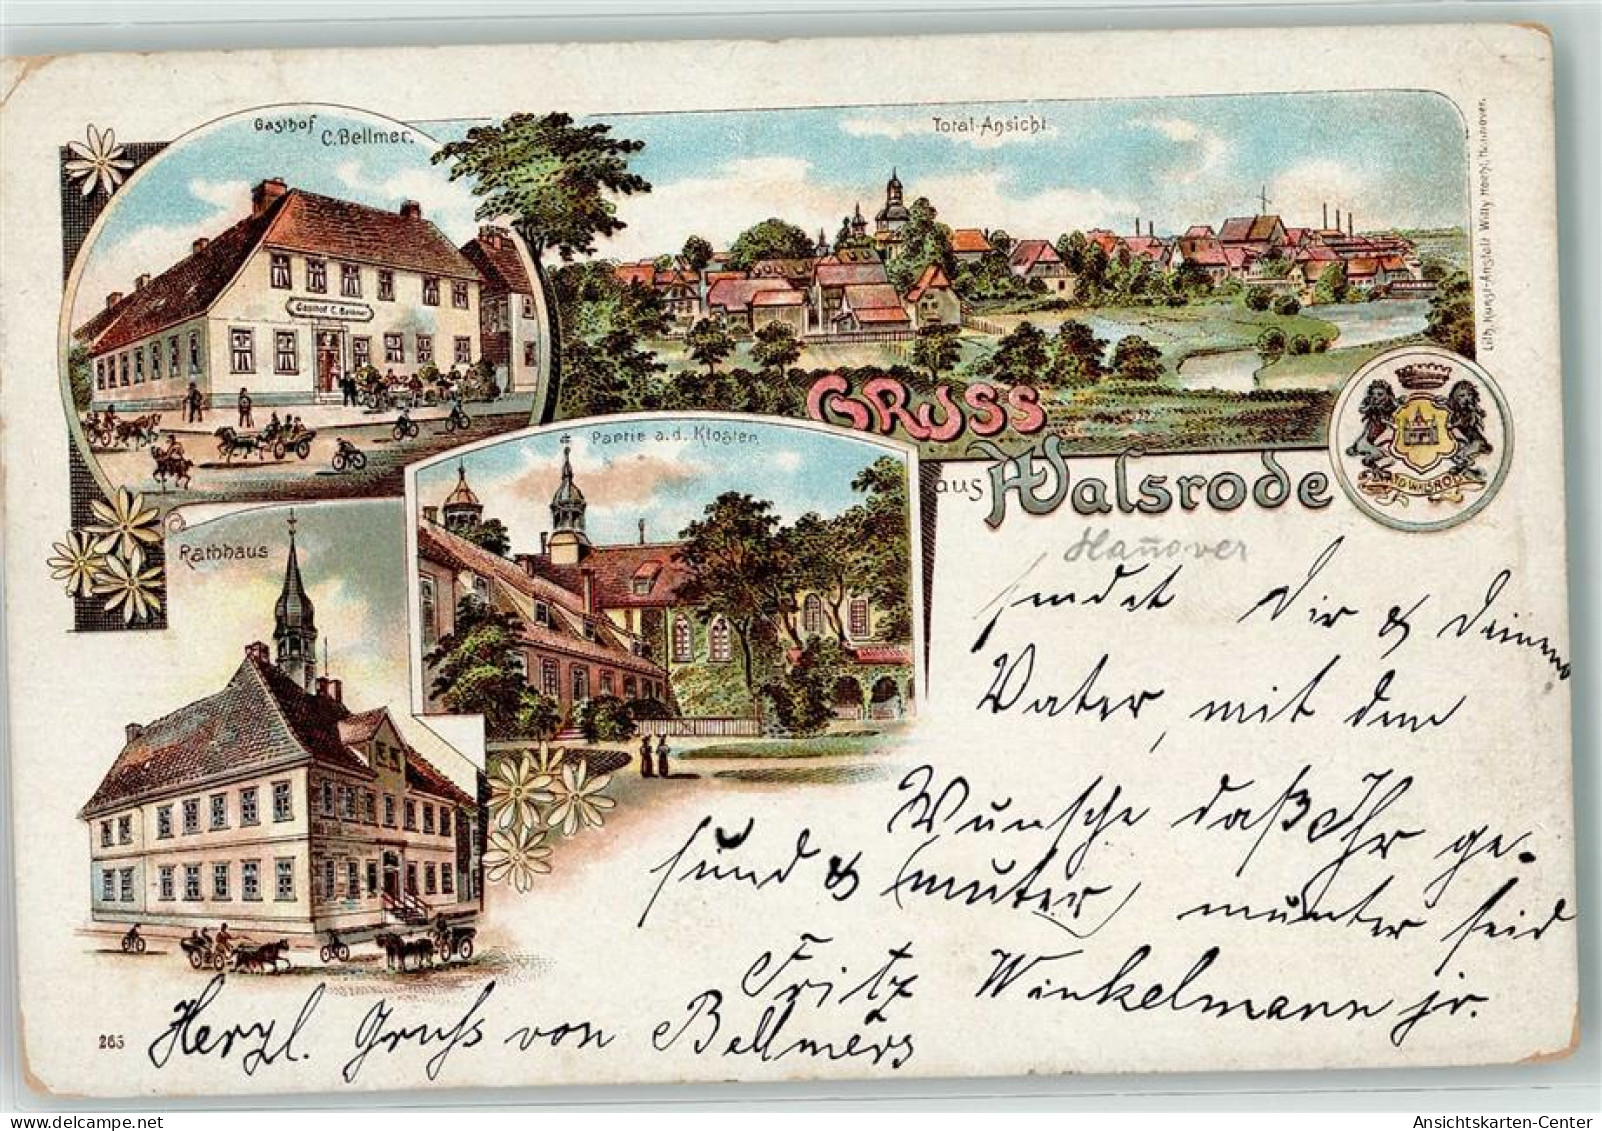 Gasthof
C. Bellmer.
Total-Ansicht.
Lith. Kunst-Anstalt Willy Hoehl, Hannover.
Gasthof C. Bellmer
Gruss
aus Walsrode
STADT WALSRODE
Partie a.d. Kloster.
Rathhaus
Hanover
sendet Dir & Deinem
Vater, mit dem
Wunsche daß Ihr ge-
sund & (munter) munter seid
Fritz Winkelmann jr.
Herzl. Gruß von Bellmers
265
AnsichtsKarten-Center